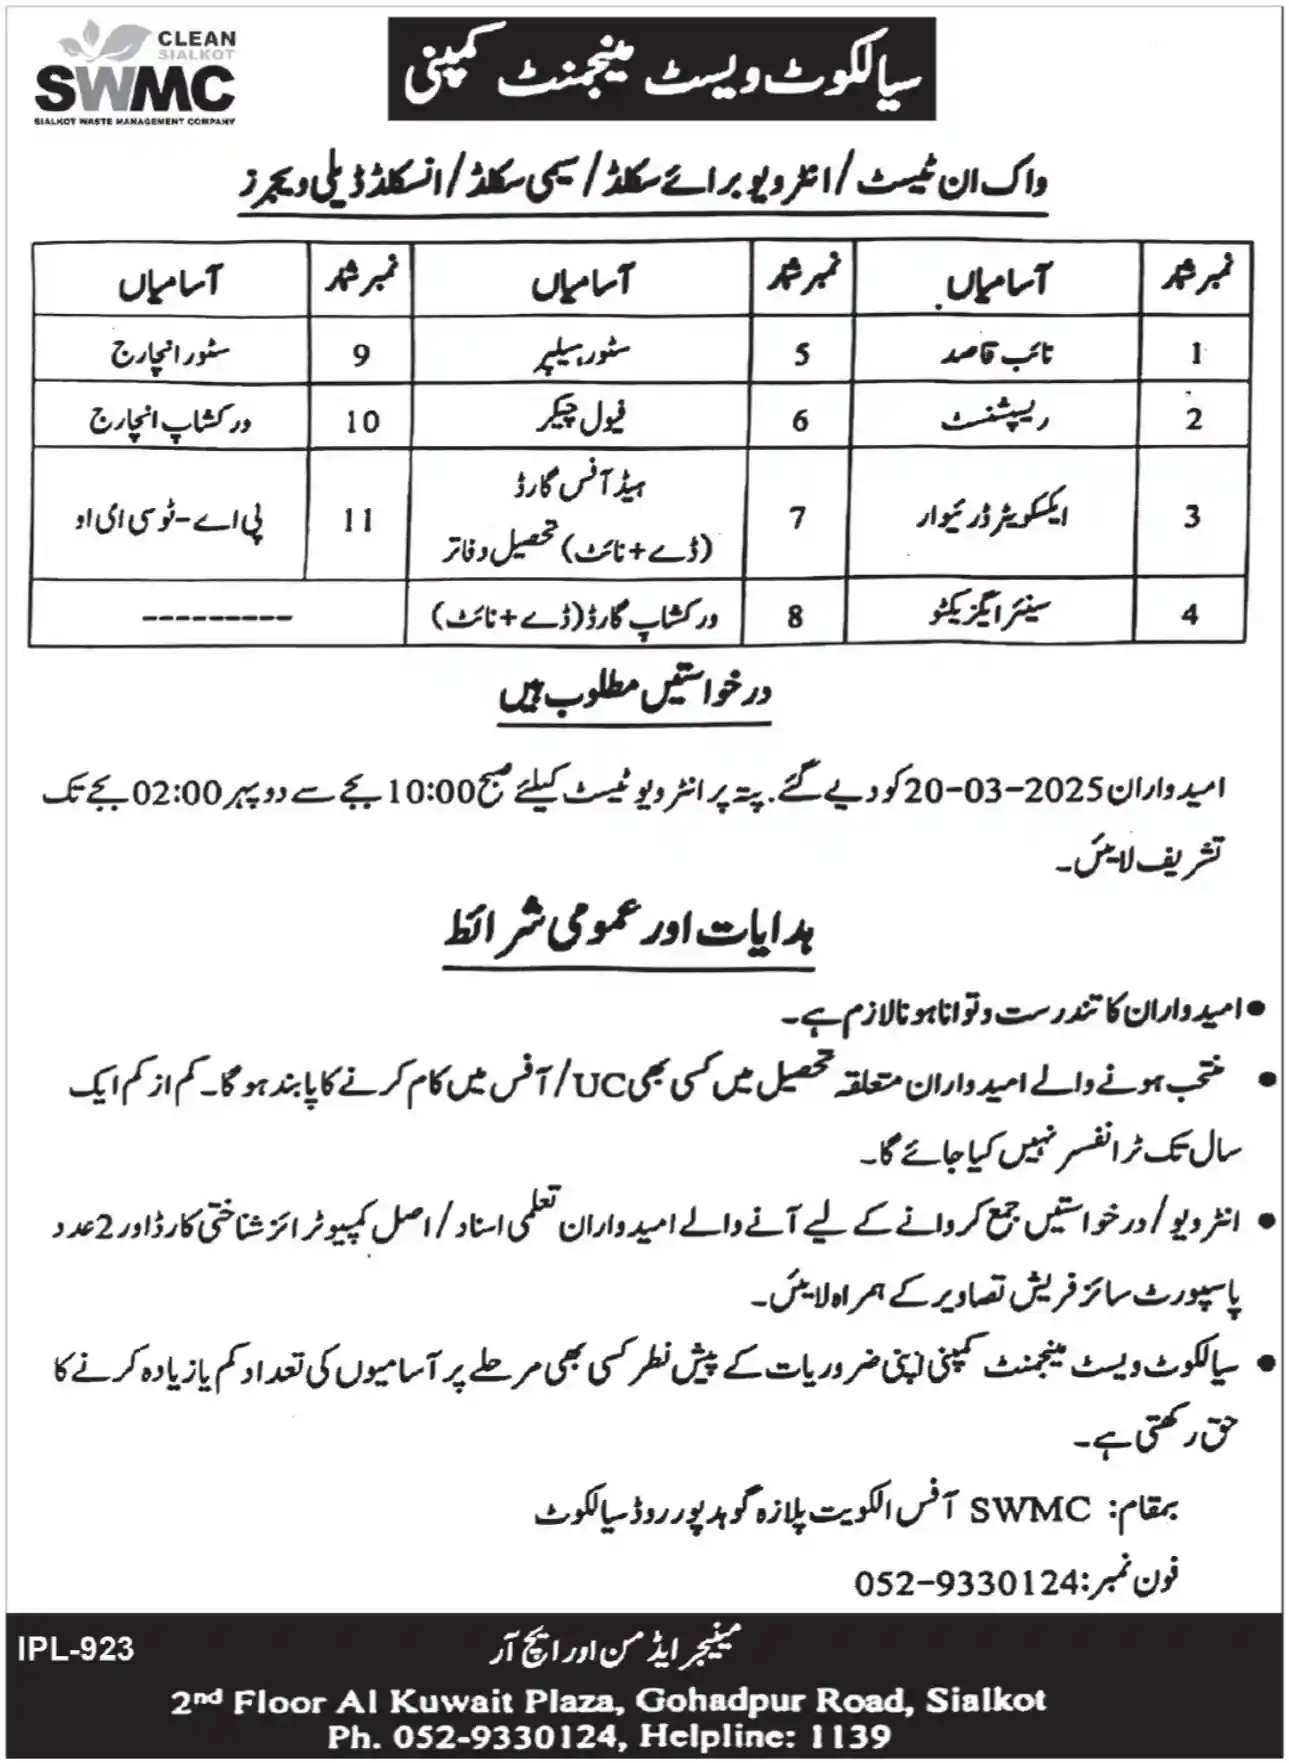 CLEAN
SIALKOT
SWMC
SIALKOT WASTE MANAGEMENT COMPANY
سیالکوٹ ویسٹ مینجمنٹ کمپنی
واک ان ٹیسٹ/انٹرویو برائے سکلڈ/سیمی سکلڈ/انسکلڈ ڈیلی ویجرز
نمبر شمار آسامیاں نمبر شمار آسامیاں نمبر شمار آسامیاں
1 نائب قاصد 5 سٹور ہیلپر 9 سٹور انچارج
2 ریسپشنسٹ 6 فیول چیکر 10 ورکشاپ انچارج
3 ایکسکویٹر ڈرائیوار 7 ہیڈ آفس گارڈ
(ڈے+نائٹ) تحصیل دفاتر 11 پی اے-ٹو سی ای او
4 سینئر ایگزیکٹو 8 ورکشاپ گارڈ (ڈے+نائٹ) ---------
درخواستیں مطلوب ہیں
امیدواران 2025-03-20 کو دیے گئے. پتہ پر انٹرویو ٹیسٹ کیلئے صبح 10:00 بجے سے دوپہر 02:00 بجے تک
تشریف لائیں۔
ہدایات اور عمومی شرائط
● امیدواران کا تندرست و توانا ہونا لازم ہے۔
● منتخب ہونے والے امیدواران متعلقہ تحصیل میں کسی بھی UC/آفس میں کام کرنے کا پابند ہو گا۔ کم از کم ایک
سال تک ٹرانفسر نہیں کیا جائے گا۔
● انٹرویو/درخواستیں جمع کروانے کے لیے آنے والے امیدواران تعلمی اسناد/اصل کمپیوٹرائز شناختی کارڈ اور 2 عدد
پاسپورٹ سائز فریش تصاویر کے ہمراہ لائیں۔
● سیالکوٹ ویسٹ مینجمنٹ کمپنی اپنی ضروریات کے پیش نظر کسی بھی مرحلے پر آسامیوں کی تعداد کم یا زیادہ کرنے کا
حق رکھتی ہے۔
بمقام: SWMC آفس الکویت پلازہ گوہد پور روڈ سیالکوٹ
فون نمبر: 052-9330124
مینیجر ایڈمن اور ایچ آر
IPL-923
2nd Floor Al Kuwait Plaza, Gohadpur Road, Sialkot
Ph. 052-9330124, Helpline: 1139